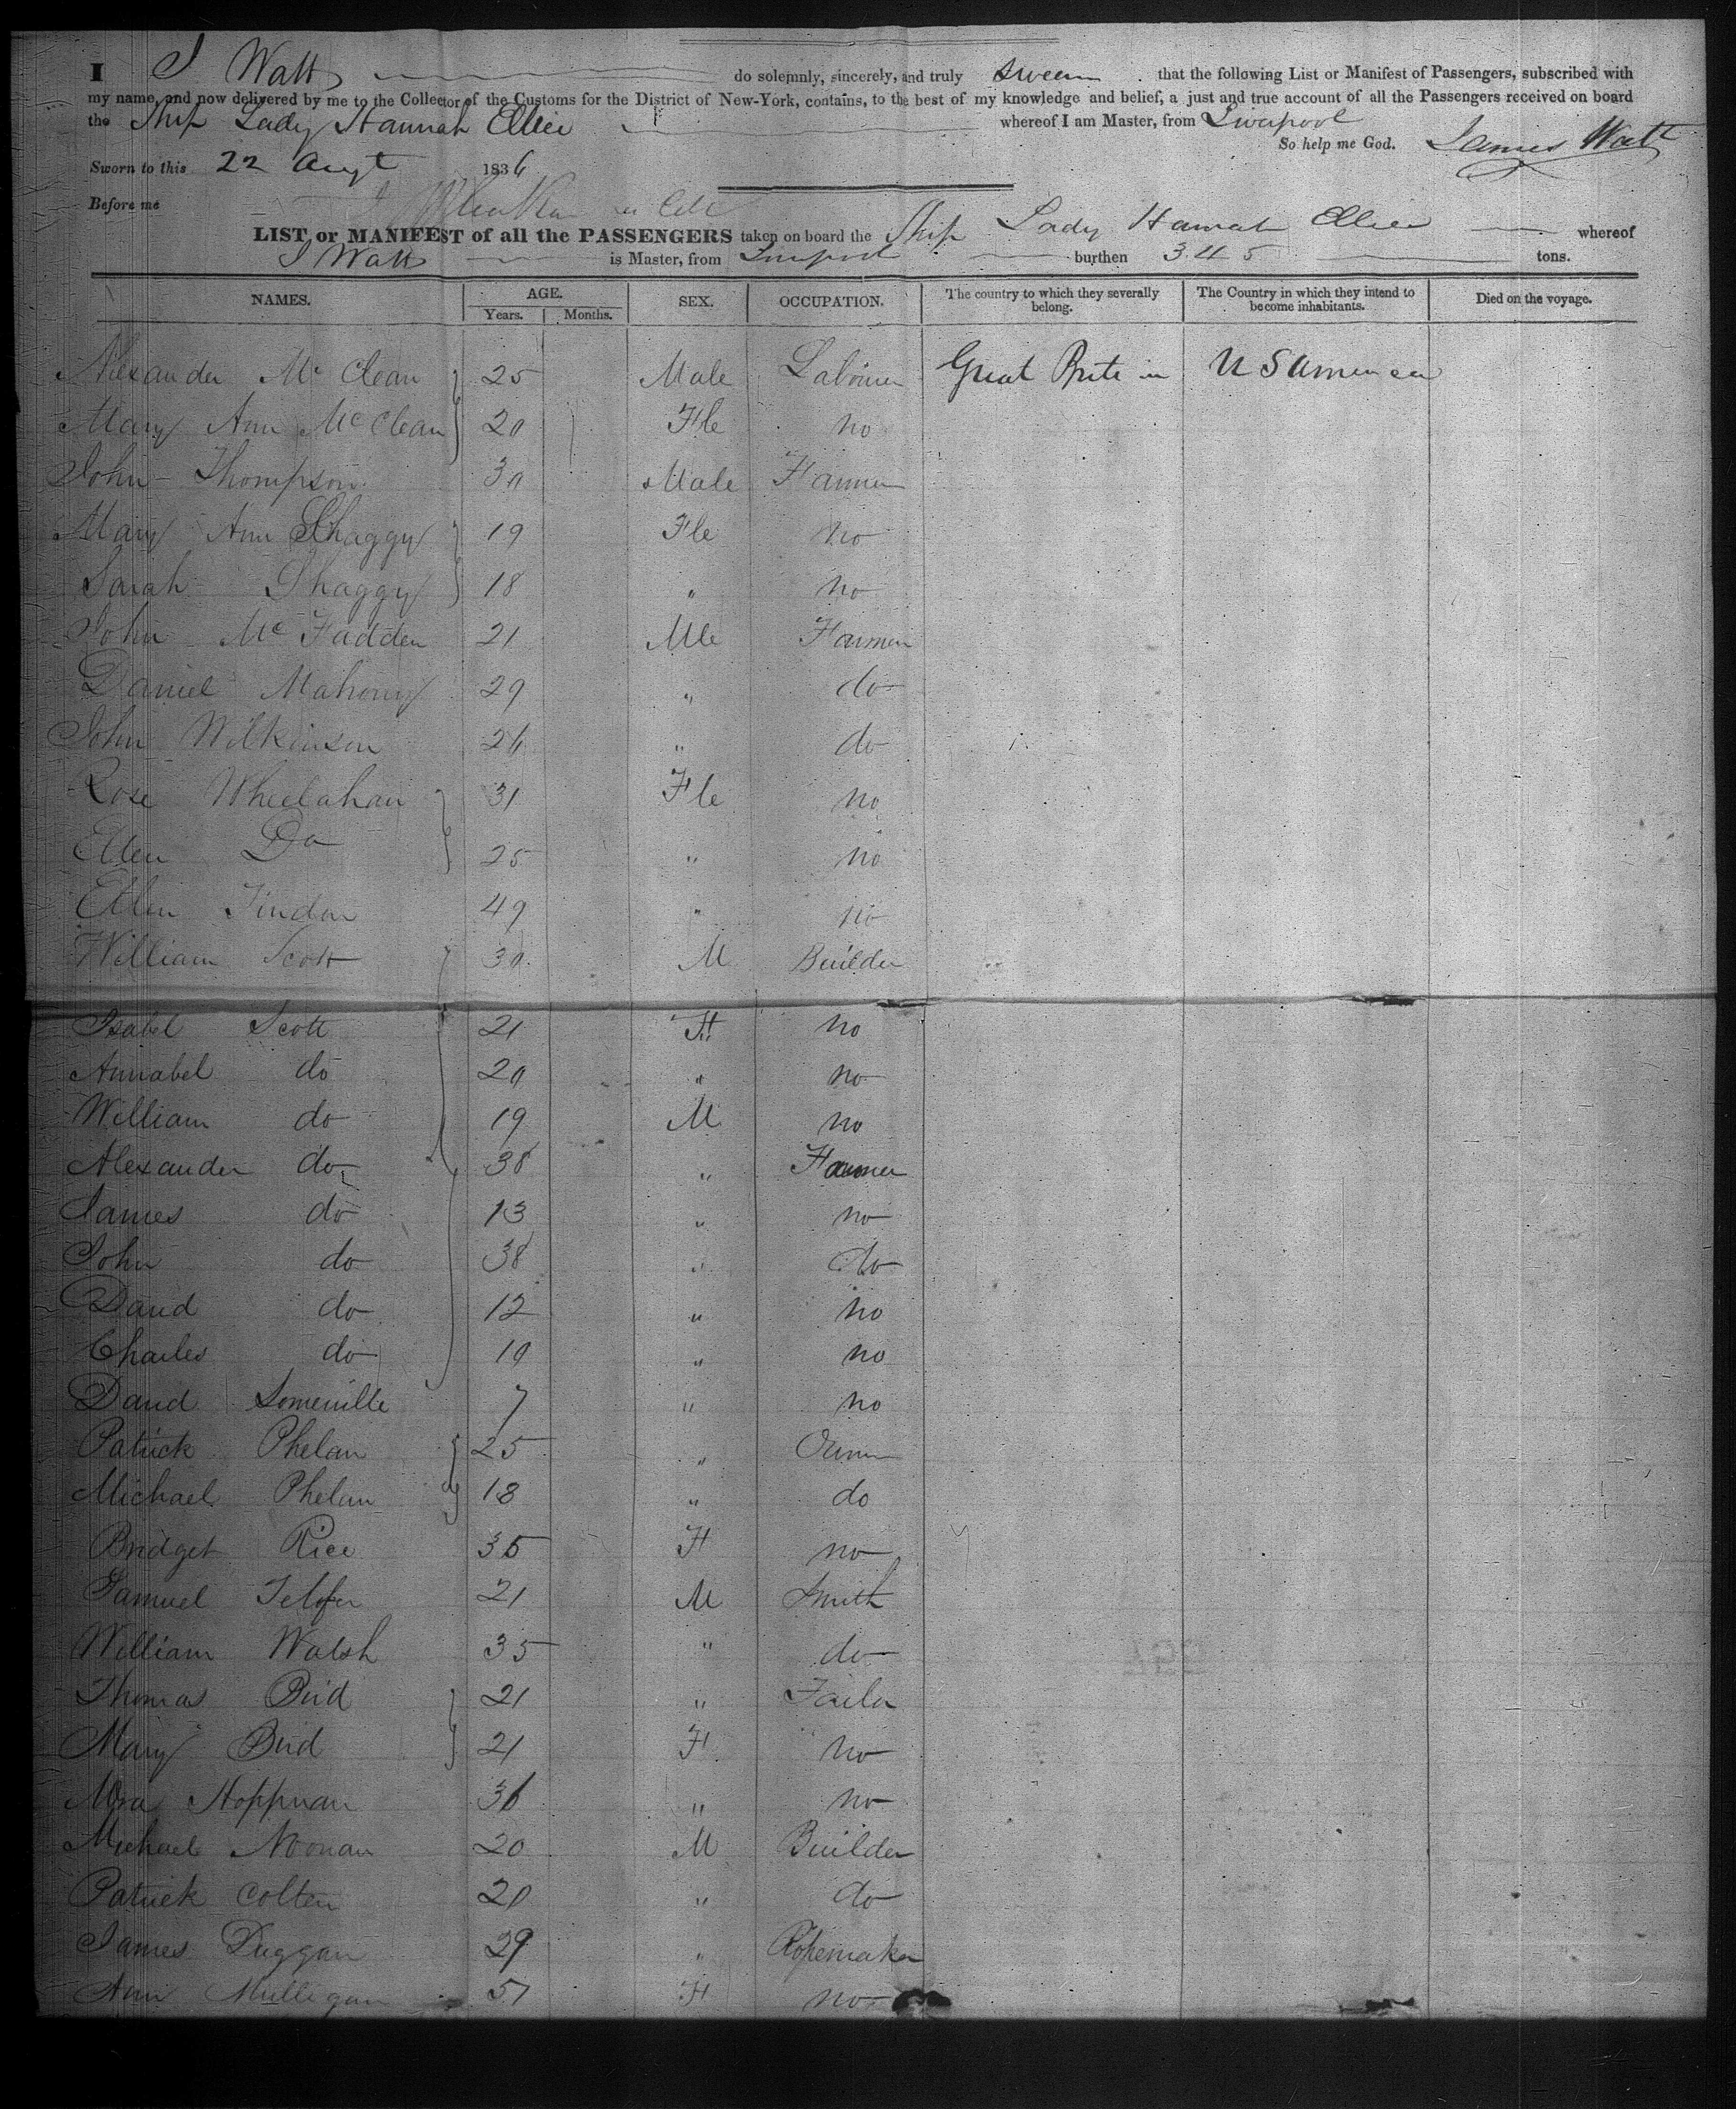 I J Watt do solemnly, sincerely, and truly swear that the following List or Manifest of Passengers, subscribed with
my name, and now delivered by me to the Collector of the Customs for the District of New-York, contains, to the best of my knowledge and belief, a just and true account of all the Passengers received on board
the Ship Lady Hannah Ellice whereof I am Master, from Liverpool
So help me God. James Watt
Sworn to this 22 Augt 1836
Before me
LIST or MANIFEST of all the PASSENGERS taken on board the Ship Lady Hannah Ellice whereof
J Watt is Master, from Liverpool burthen 345 tons.
NAMES. AGE. SEX. OCCUPATION. The country to which they severally belong. The Country in which they intend to become inhabitants. Died on the voyage.
Years. Months.
Alexander Mc Clean 25 Male Labourer Great Britain U S America
Mary Ann McClean 20 Fle no
John Thompson 30 Male Farmer
Mary Ann Shaggy 19 Fle no
Sarah Shaggy 18 " no
John Mc Fadden 21 Mle Farmer
Daniel Mahony 29 " do
John Wilkinson 26 " do
Rose Wheelahan 31 Fle no
Ellen Do 25 " no
Ellen 49 " no
William Scott 30 M Builder
Isabel Scott 21 F no
Annabel do 20 " no
William do 19 M no
Alexander do 38 " Farmer
James do 13 " no
John do 38 " do
David do 12 " no
Charles do 10 " no
David Somerville 7 " no
Patrick Phelan 25 "
Michael Phelan 18 " do
Bridget Rice 35 F no
Samuel Telfer 21 M Smith
William Walsh 35 " do
Thomas Bird 21 " Tailor
Mary Bird 21 F no
Hoppman 36 " no
Michael Noonan 20 M Builder
Patrick Colten 20 " do
James Duggan 29 " Ropemaker
Ann Mulligan 51 F no